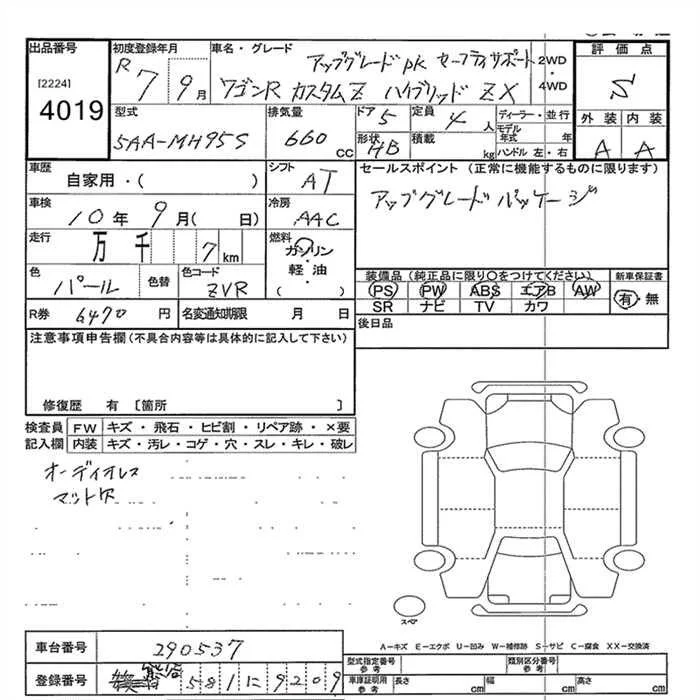 出品番号
[2224]
4019
初度登録年月
R 7 9月
車名・グレード
アップグレードpk セーフティサポート
ワゴンR カスタムZ ハイブリッド ZX
2WD
・
4WD
評価点
S
外装 内装
A A
型式
5AA-MH95S
排気量
660 CC
ドア 5
定員 4 人
形状 HB
積載 kg
ディーラー・並行
モデル年式 年
ハンドル 左・右
車歴
自家用・( )
シフト
AT
セールスポイント (正常に機能するものに限ります)
アップグレードパッケージ
車検
10年 9月( 日)
冷房
AAC
走行
万 千 7 km
燃料
ガソリン
・
軽・油
( )
色
パール
色替
色コード
ZVR
装備品 (純正品に限り〇をつけてください)
PS PW ABS エアB AW
SR ナビ TV カワ
新車保証書
有・無
R券 6470 円
名変通知期限 月 日
後日品
注意事項申告欄(不具合内容等は具体的に記入して下さい)
修復歴 有 〔箇所 〕
検査員記入欄
FW キズ・飛石・ヒビ割・リペア跡・×要
内装 キズ・汚レ・コゲ・穴・スレ・キレ・破レ
オーディオレス
マット欠
スペア
A-キズ E-エクボ U-凹み W-補修跡 S-サビ C-腐食 XX-交換済
車台番号
290537
登録番号
581 に 9209
型式指定番号 参考
類別区分番号 参考
車庫証明用 参考
長さ cm
幅 cm
高さ cm